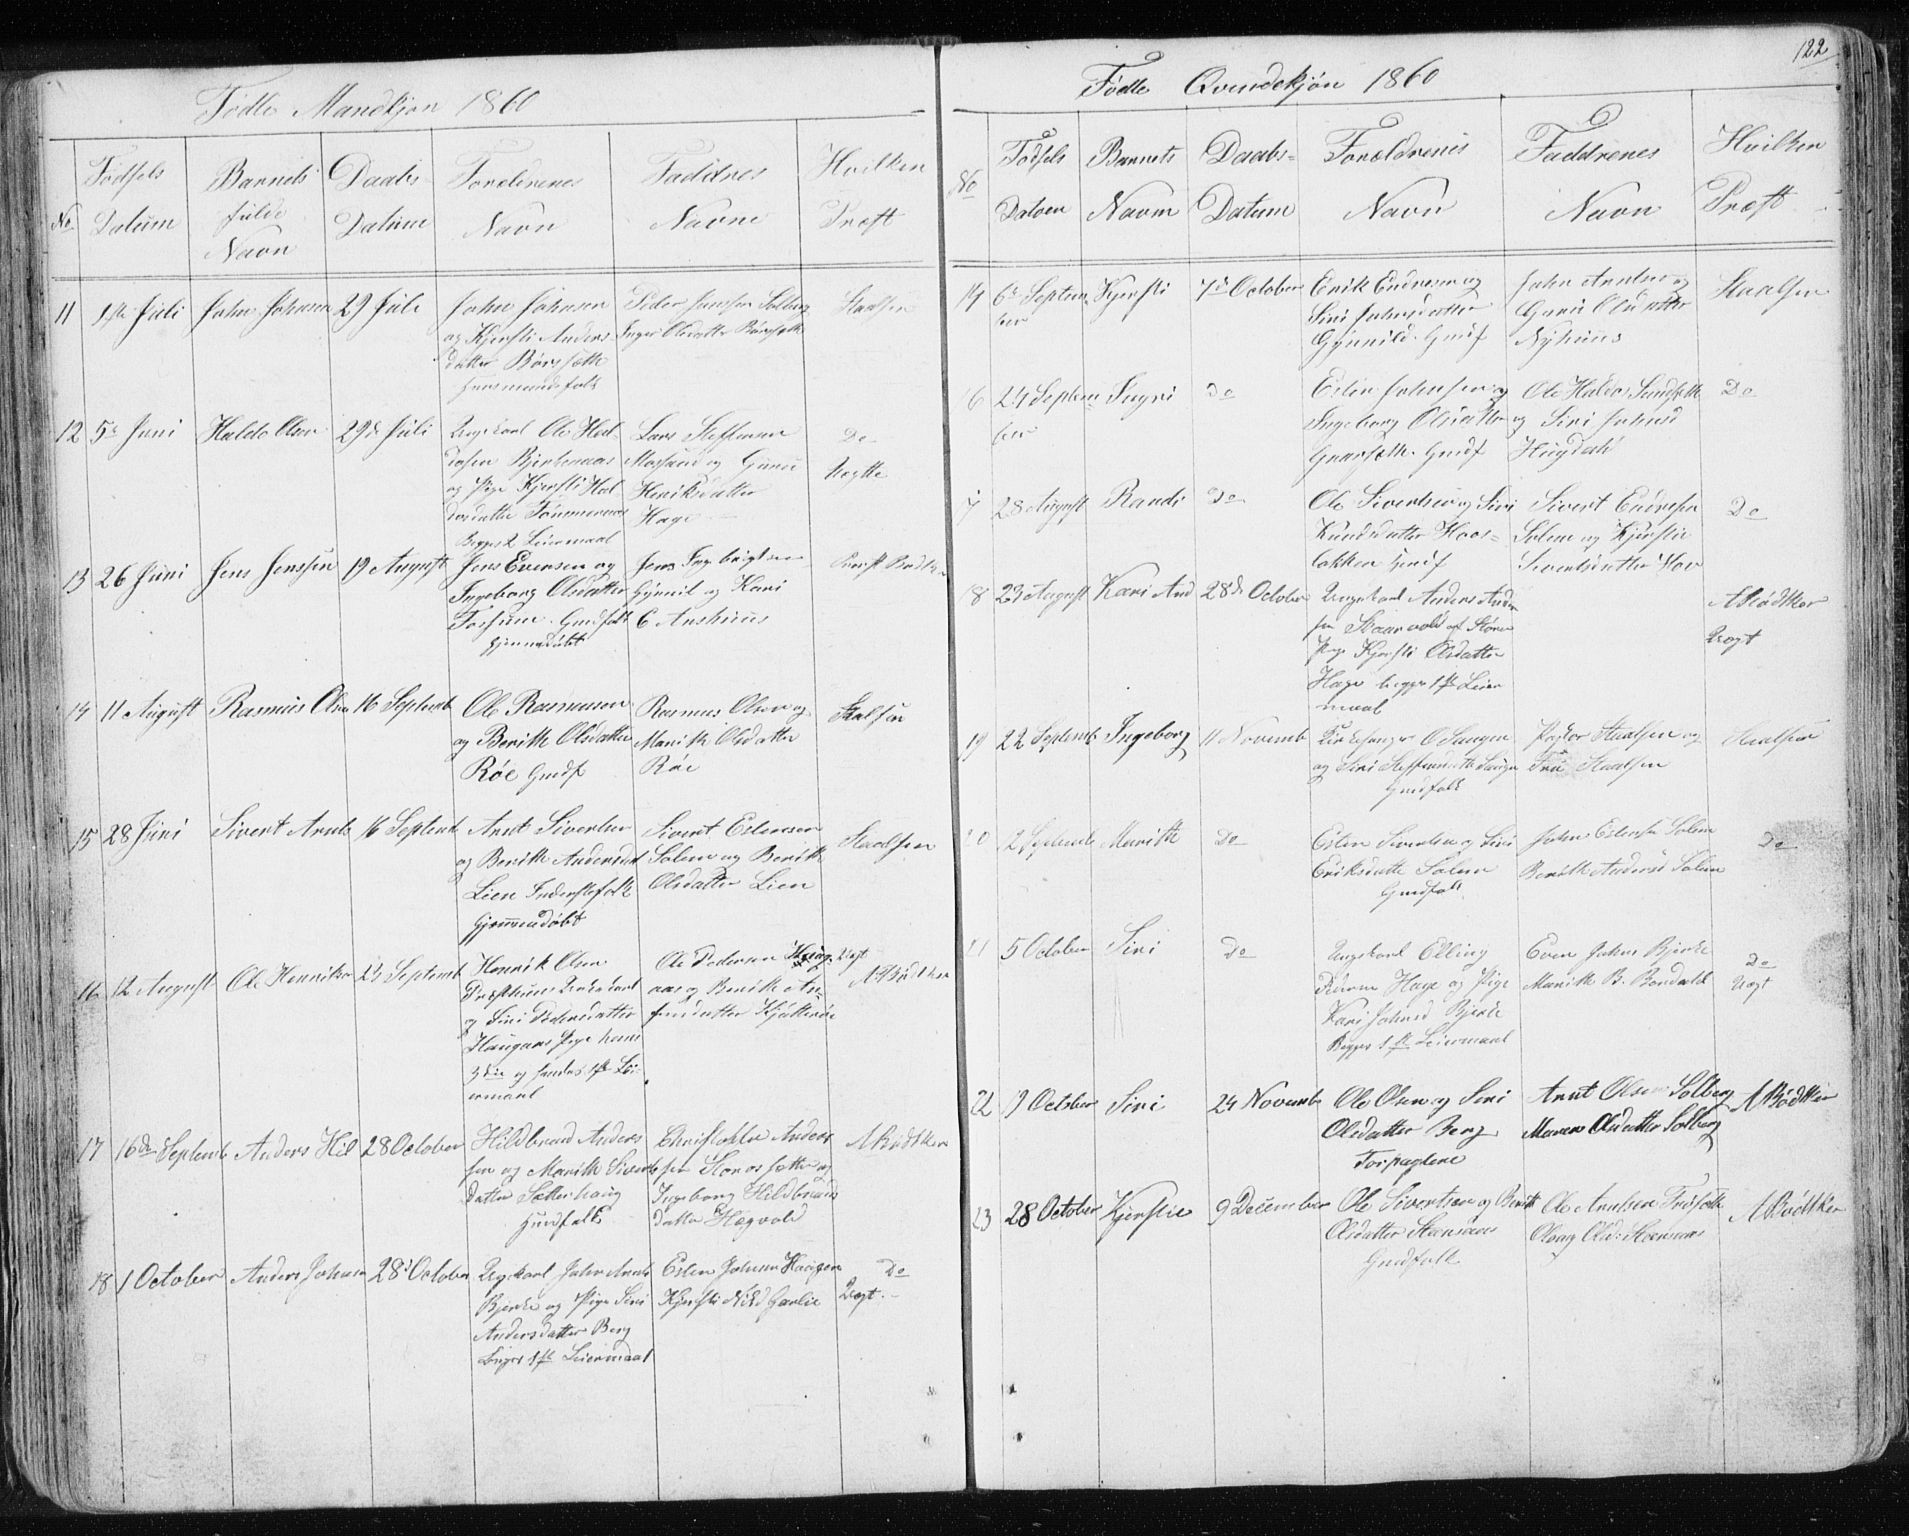 Fødte Mandkjøn 1860
No
Fødsels Datum
Barnets fulde Navn
Daabs Datum
Forælderenes Navn
Faddres Navne
Hvilken Præst
11
1ste Juli
John Johnsen
29 Juli
John Johnsen
og Kjersti Anders
datter Børgsætte
Huusmandsfolk
Peder Jensen Solberg
Inger Olsdatter Børgsætte
Staalsen
12
5te Juni
Haldo Olsen
29de Juli
Ungekarl Ole Hal
dosen Bjerknaas
og Pige Kjersti Hal
dosdatter
Begges 2 Leiermaal
Lars Steffensen
og Guru
Henriksdatter
Hage
Do
Uægte
13
26 Juni
Jens Jenssen
19 August
Jens Evensen og
Ingeborg Olsdatter
Fossum. Gmdfolk
Hjemmedøbt
Jens Ingebrigtsen
Gynnil og Kari
E Anshuus
14
11 August
Rasmus Olsen
16 Septemb
Ole Rasmussen
og Berith Olsdatter
Røe Gmdf
Rasmus Olsen og
Marith Olsdatter
Røe
Staalsen
15
28 Juni
Sivert Arnts
16 Septemb
Arnt Sivertsen
og Berith Andersdat
Lien Inderstefolk
Hjemmedøbt
Sivert Estensen
Solem og Berith
Olsdatter Lien
Staalsen
16
12 August
Ole Henriksen
23 Septemb
Henrik Olsen
Præsthuus Enkekarl
og Siri Pedersdatter
Haugaas Pige hans
3die og hendes 1ste Lei-
ermaal
Ole Pedersen Haug-
aas og Berith An-
findsdatter
Uægt
A Bødtker
17
16de Septemb
Anders Hil
28 October
Hildbrand Anders
sen og Marith Siverts
datter Sætterhaug
Gmdfolk
Christopher Anders
sen og
Ingeborg Hildbrands
datter Hægvold
A Bødtker
18
1 October
Anders Johnsen
28de October
Ungekarl John Arnts
Bjerke og Pige Siri
Andersdatter Berg
begges 1ste Leiermaal
Esten Johnsen Haugen
Kjersti Garlie
Do
Uægt.
122
Fødte Qvindekjøn 1860
No
Fødsels Datoen
Barnets Navn
Daabs- Datum
Forældrenes Navn
Faddrenes Navn
Hvilken Præst
6te Septem
ber
Kjersti
7de October
Erik Endresen og
Siri Johnsdatter
Gynnild. Gmdf
John Arntsen og
Guru Olsdatter
Nyhuus
Staalsen
16
24 Septem
ber
Ingri
Do
Esten Johnsen og
Ingeborg Olsdatter
Gmdf
Ole Haldos Sundsæth
og Siri Johnsd
Hugdal
Do
17
28 August
Randi
Do
Ole Sivertsen og Siri
Knudsdatter Haas-
bakken Gmdf
Sivert Endresen
Solem og Kjerstie
Sivertsdatter Hov
Do
18
23 August
Kari And
28de October
Ungekarl Anders Ander
sen Skaarvold af Støren
Pige Kjersti Olsdatter
Hage begges 1ste Leier
maal
A Bødtker
Uægt
19
22 Septemb
Ingeborg
11 Novemb
Kirkesanger O Saugen
og Siri Steffensdtr Saugen
Gmdfolk
Pastor Staalsen og
Frue Staalsen
Staalsen
20
2 Septemb
Marith
Do
Esten Sivertsen og Siri
Eriksdatte Solem
Gmdfolk
John Estensen Solem
Berith Andersd Solem
Do
21
5 October
Siri
Do
Ungekarl Elling
Pedersen Hage og Pige
Kari Johnsd Bjerke
Begges 1ste Leiermaal
Even Johns Bjerke
Marith B. Bondal
Do
Uægt
22
19 October
Siri
24 Novemb
Ole Olsen og Siri
Olsdatter Berg
Forpagtere
Arnt Olsen Solberg
Maren Olsdatter Solberg
A Bødtker
23
28 October
Kjerstie
9 December
Ole Sivertsen og Berith
Olsdatter
Gmdfolk
Ole Arntsen
Olaug Olsd:
A Bødtker